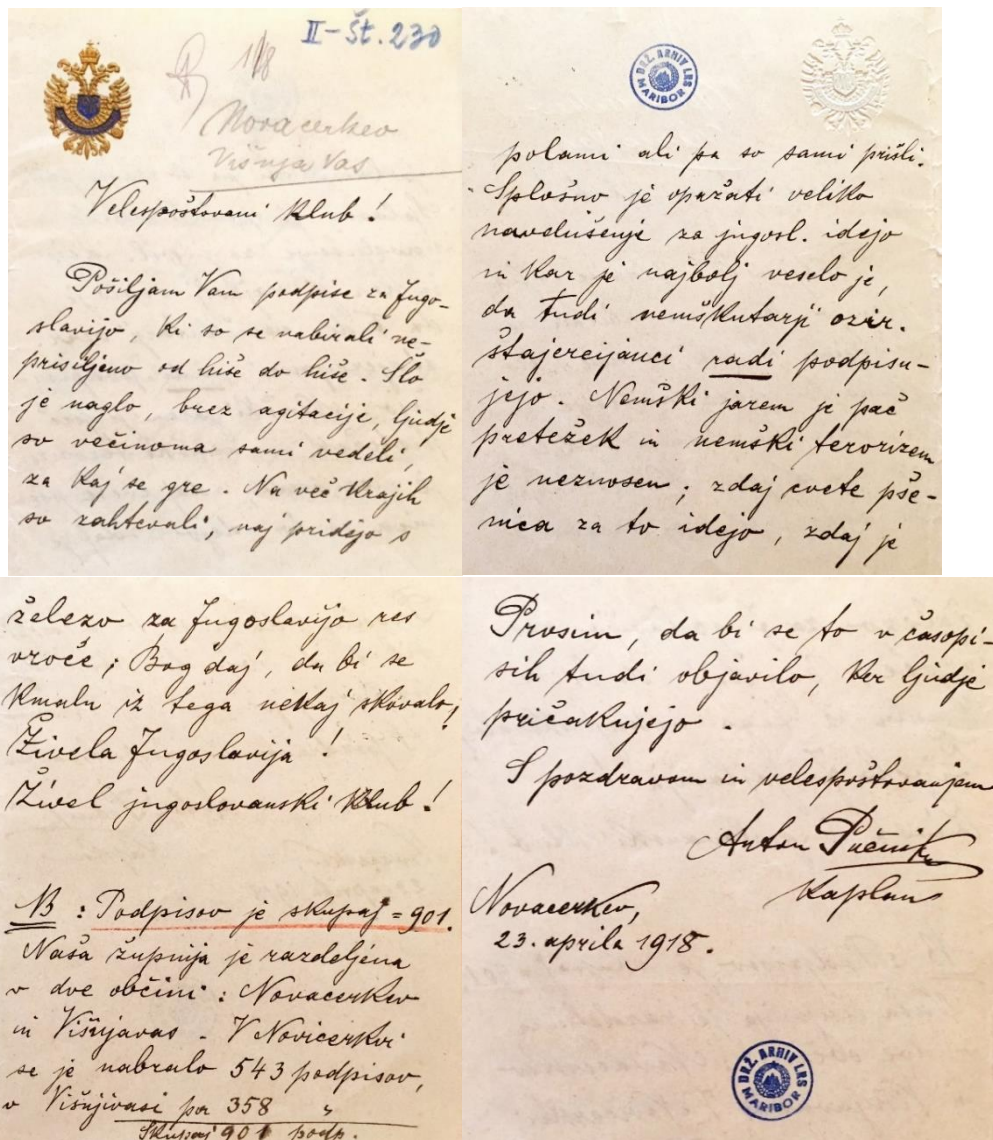 II - Št. 230
1/8
Novacerkev
Višnja Vas
Velespoštovani klub!
Pošiljam Vam podpise za Jugo-
slavijo, ki so se nabirali ne-
prisiljeno od hiše do hiše. Šlo
je naglo, brez agitacije, ljudje
so večinoma sami vedeli,
za kaj se gre. Na več krajih
so zahtevali, naj pridejo s
DRŽ. ARHIV LRS
MARIBOR
polami ali pa so sami prišli.
Splošno je opažati veliko
navdušenje za jugosl. idejo
in kar je najbolj veselo je,
da tudi nemškutarji ozir.
štajercijanci radi podpisu-
jejo. Nemški jarem je pač
pretežek in nemški terorizem
je neznosen; zdaj cvete pše-
nica za to idejo, zdaj je
železo za Jugoslavijo res
vroče; Bog daj, da bi se
kmalu iz tega nekaj skovalo!
Živela Jugoslavija!
Živel jugoslovanski klub!
NB: Podpisov je skupaj = 901.
Naša župnija je razdeljena
v dve občini: Novacerkev
in Višnjavas. V Novicerkvi
se je nabralo 543 podpisov,
v Višnjivasi pa 358 "
Skupaj 901 podp.
Prosim, da bi se to v časopi-
sih tudi objavilo, ker ljudje
pričakujejo.
S pozdravom in velespoštovanjem
Anton Pučnik
kaplan
Novacerkev,
23. aprila 1918.
DRŽ. ARHIV LRS
MARIBOR